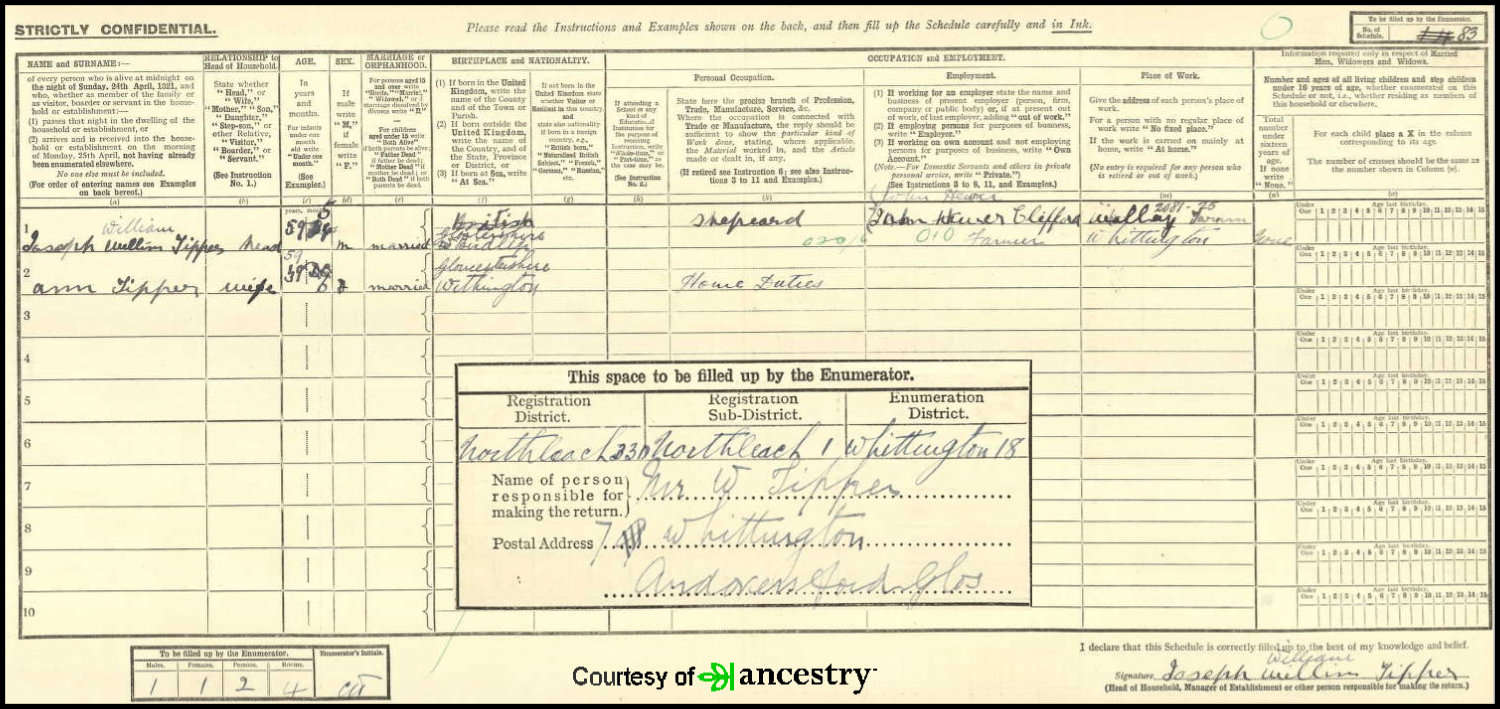 STRICTLY CONFIDENTIAL.
Please read the Instructions and Examples shown on the back, and then fill up the Schedule carefully and in Ink.
To be filled up by the Enumerator.
No. of Schedule. 83
NAME and SURNAME:—
of every person who is alive at midnight on
the night of Sunday, 24th April, 1921, and
who, whether as member of the family or
as visitor, boarder or servant in the house-
hold or establishment:—
(1) passes that night in the dwelling of the
household or establishment, or
(2) arrives and is received into the house-
hold or establishment on the morning
of Monday, 25th April, not having already
been enumerated elsewhere.
No one else must be included.
(For order of entering names see Examples
on back hereof.)
(a)
RELATIONSHIP to
Head of Household.
State whether
"Head," or
"Wife,"
"Mother," "Son,"
"Daughter,"
"Step-son," or
other Relative,
"Visitor,"
"Boarder," or
"Servant."
(See Instruction
No. 1.)
(b)
AGE.
In
years
and
months.
For infants
under one
month
old write
"Under one
month."
(See
Examples.)
(c)
SEX.
If
male
write
"M."
if
female
write
"F."
(d)
MARRIAGE or
ORPHANHOOD.
For persons aged 15
and over write
"Single," "Married,"
"Widowed," or if
marriage dissolved by
divorce write "D."
For children
aged under 15 write
"Both Alive"
if both parents be alive;
"Father Dead"
if father be dead;
"Mother Dead" if
mother be dead; or
"Both Dead" if both
parents be dead.
(e)
BIRTHPLACE and NATIONALITY.
(1) If born in the United
Kingdom, write the
name of the County
and of the Town or
Parish.
(2) If born outside the
United Kingdom,
write the name of
the Country, and of
the State, Province
or District, or
(3) If born at Sea, write
"At Sea."
(f)
If not born in the
United Kingdom state
whether Visitor or
Resident in this country
and
state also nationality
if born in a foreign
country, e.g.,
"British born,"
"Naturalized British
Subject," "French,"
"German," "Russian,"
etc.
(g)
OCCUPATION and EMPLOYMENT.
If attending a
School or any
kind of
Educational
Institution for
the purpose of
receiving
Instruction, write
"Whole-time," or
"Part-time," as
the case may be.
(See Instruction
No. 2.)
(h)
Personal Occupation.
State here the precise branch of Profession,
Trade, Manufacture, Service, &c.
Where the occupation is connected with
Trade or Manufacture, the reply should be
sufficient to show the particular kind of
Work done, stating, where applicable,
the Material worked in, and the Article
made or dealt in, if any.
(If retired see Instruction 6; see also Instruc-
tions 3 to 11 and Examples.)
(k)
Employment.
(1) If working for an employer state the name and
business of present employer (person, firm,
company or public body) or, if at present out
of work, of last employer, adding "out of work."
(2) If employing persons for purposes of business,
write "Employer."
(3) If working on own account and not employing
persons for purposes of business, write "Own
Account."
(Note.—For Domestic Servants and others in private
personal service, write "Private.")
(See Instructions 3 to 8, 11, and Examples.)
Place of Work.
Give the address of each person's place of
work.
For a person with no regular place of
work write "No fixed place."
If the work is carried on mainly at
home, write "At home."
(No entry is required for any person who
is retired or out of work.)
(m)
Information required only in respect of Married
Men, Widowers and Widows.
Number and ages of all living children and step children
under 16 years of age, whether enumerated on this
Schedule or not, i.e., whether residing as members of
this household or elsewhere.
Total
number
under
sixteen
years of
age.
If none
write
"None."
(n)
For each child place a X in the column
corresponding to its age.
The number of crosses should be the same as
the number shown in Column (n).
1
William
Joseph William Tipper Head 59 5 M married
British
Gloucestershire
Birdlip
Shepeard
John Hewer
John Hewer Clifford
010 Farmer
2081.75
Whalley Farm
Whittington
None
2
ann Tipper wife 59 6 F married
Gloucestershire
Withington
Home Duties
3
4
5
6
7
8
9
10
Under One 1 2 3 4 5 6 7 8 9 10 11 12 13 14 15
Age last birthday.
This space to be filled up by the Enumerator.
Registration District.
Registration Sub-District.
Enumeration District.
Northleach 330 Northleach 1 Whittington 18
Name of person responsible for making the return.) Mr W Tipper
Postal Address 7 Whittington
Andoversford Glos
To be filled up by the Enumerator.
Males. Females. Persons. Rooms.
1 1 2 4
Enumerator's Initials.
I declare that this Schedule is correctly filled up to the best of my knowledge and belief.
William
Signature Joseph William Tipper
(Head of Household, Manager of Establishment or other person responsible for making the return.)
Courtesy of ancestry